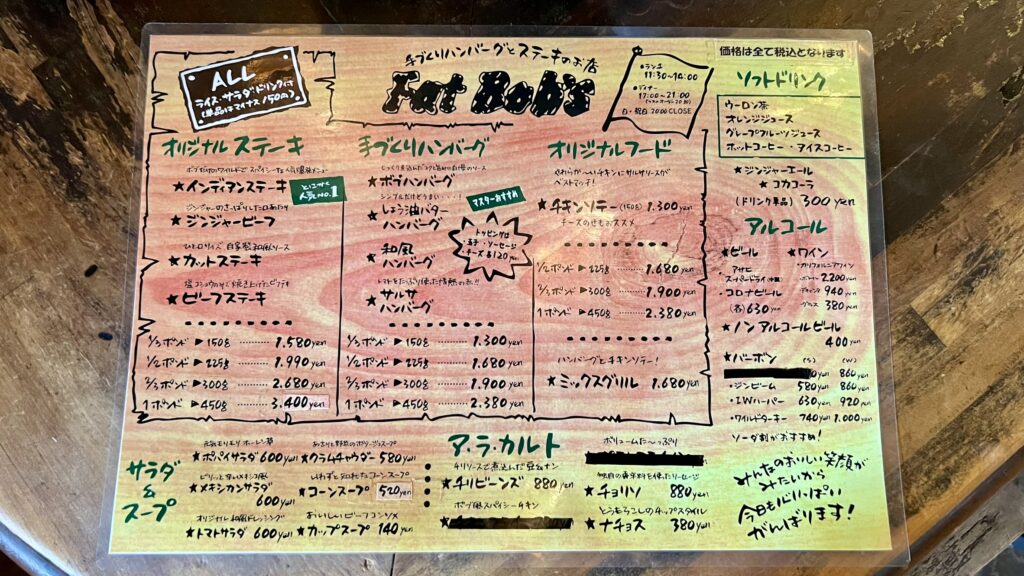 ALL
ライス・サラダ・ドリンク付
(単品はマイナス150円)
手づくりハンバーグとステーキのお店
Fat Bob's
●ランチ
11:30~14:00
●ディナー
17:00~21:00
日・祝日 20:00 CLOSE
価格は全て税込となります
オリジナルステーキ
★インディアンステーキ
とにかく
人気NO.1
ジンジャーのさっぱりした口あたり
★ジンジャービーフ
ひと口サイズ 自家製和風ソース
★カットステーキ
★ビーフステーキ
1/3ポンド ▶150g ……… 1.580yen
1/2ポンド ▶225g ……… 1.990yen
2/3ポンド ▶300g ……… 2.680yen
1ポンド ▶450g ……… 3.400yen
手づくりハンバーグ
★ボブハンバーグ
シンプルだけどうまい・・・・!
★しょう油バター
ハンバーグ
マスターおすすめ
★和風
ハンバーグ
トッピングは
・玉子・ソーセージ
チーズ各120yen
★サルサ
ハンバーグ
1/3ポンド ▶150g ……… 1.300yen
1/2ポンド ▶225g ……… 1.680yen
2/3ポンド ▶300g ……… 1.900yen
1ポンド ▶450g ……… 2.380yen
オリジナルフード
やわらか〜いチキンにサルサソースが
ベストマッチ!
★チキンソテー (150g) 1.300yen
チーズのせもおススメ
1/2ポンド ▶225g ……… 1.680yen
2/3ポンド ▶300g ……… 1.900yen
1ポンド ▶450g ……… 2.380yen
ハンバーグとチキンソテー!
★ミックスグリル 1.680yen
ソフトドリンク
ウーロン茶
オレンジジュース
グレープフルーツジュース
ホットコーヒー・アイスコーヒー
★ジンジャーエール
★コカコーラ
(ドリンク単品) 300yen
アルコール
★ビール
・アサヒ
スーパードライ(中瓶)
・コロナビール
(各)630yen
★ワイン
・カリフォルニアワイン
ボトル 2.200yen
デキャンタ 940yen
グラス 380yen
★ノンアルコールビール
400yen
★バーボン (S) (W)
860yen
・ジンビーム 580yen 860yen
・I.Wハーパー 630yen 920yen
・ワイルドターキー 740yen 1.000yen
ソーダ割がおすすめ!
みんなのおいしい笑顔が
みたいから
今日も力いっぱい
がんばります!
サラダ
&
スープ
元気もりもり ホーレン草
★ポパイサラダ 600yen
ピリッと辛いメキシコ風
★メキシカンサラダ
600yen
オリジナル和風ドレッシング
★トマトサラダ 600yen
あさりと野菜のポタージュスープ
★クラムチャウダー 580yen
★コーンスープ 520yen
おいしいビーフコンソメ
★カップスープ 140yen
ア・ラ・カルト
チリソースで煮込んだ豆&ナン
★チリビーンズ 880yen
ボブ風スパイシーチキン
ボリュームた〜っぷり
★チョリソ 880yen
とうもろこしのチップスタイル
★ナチョス 380yen